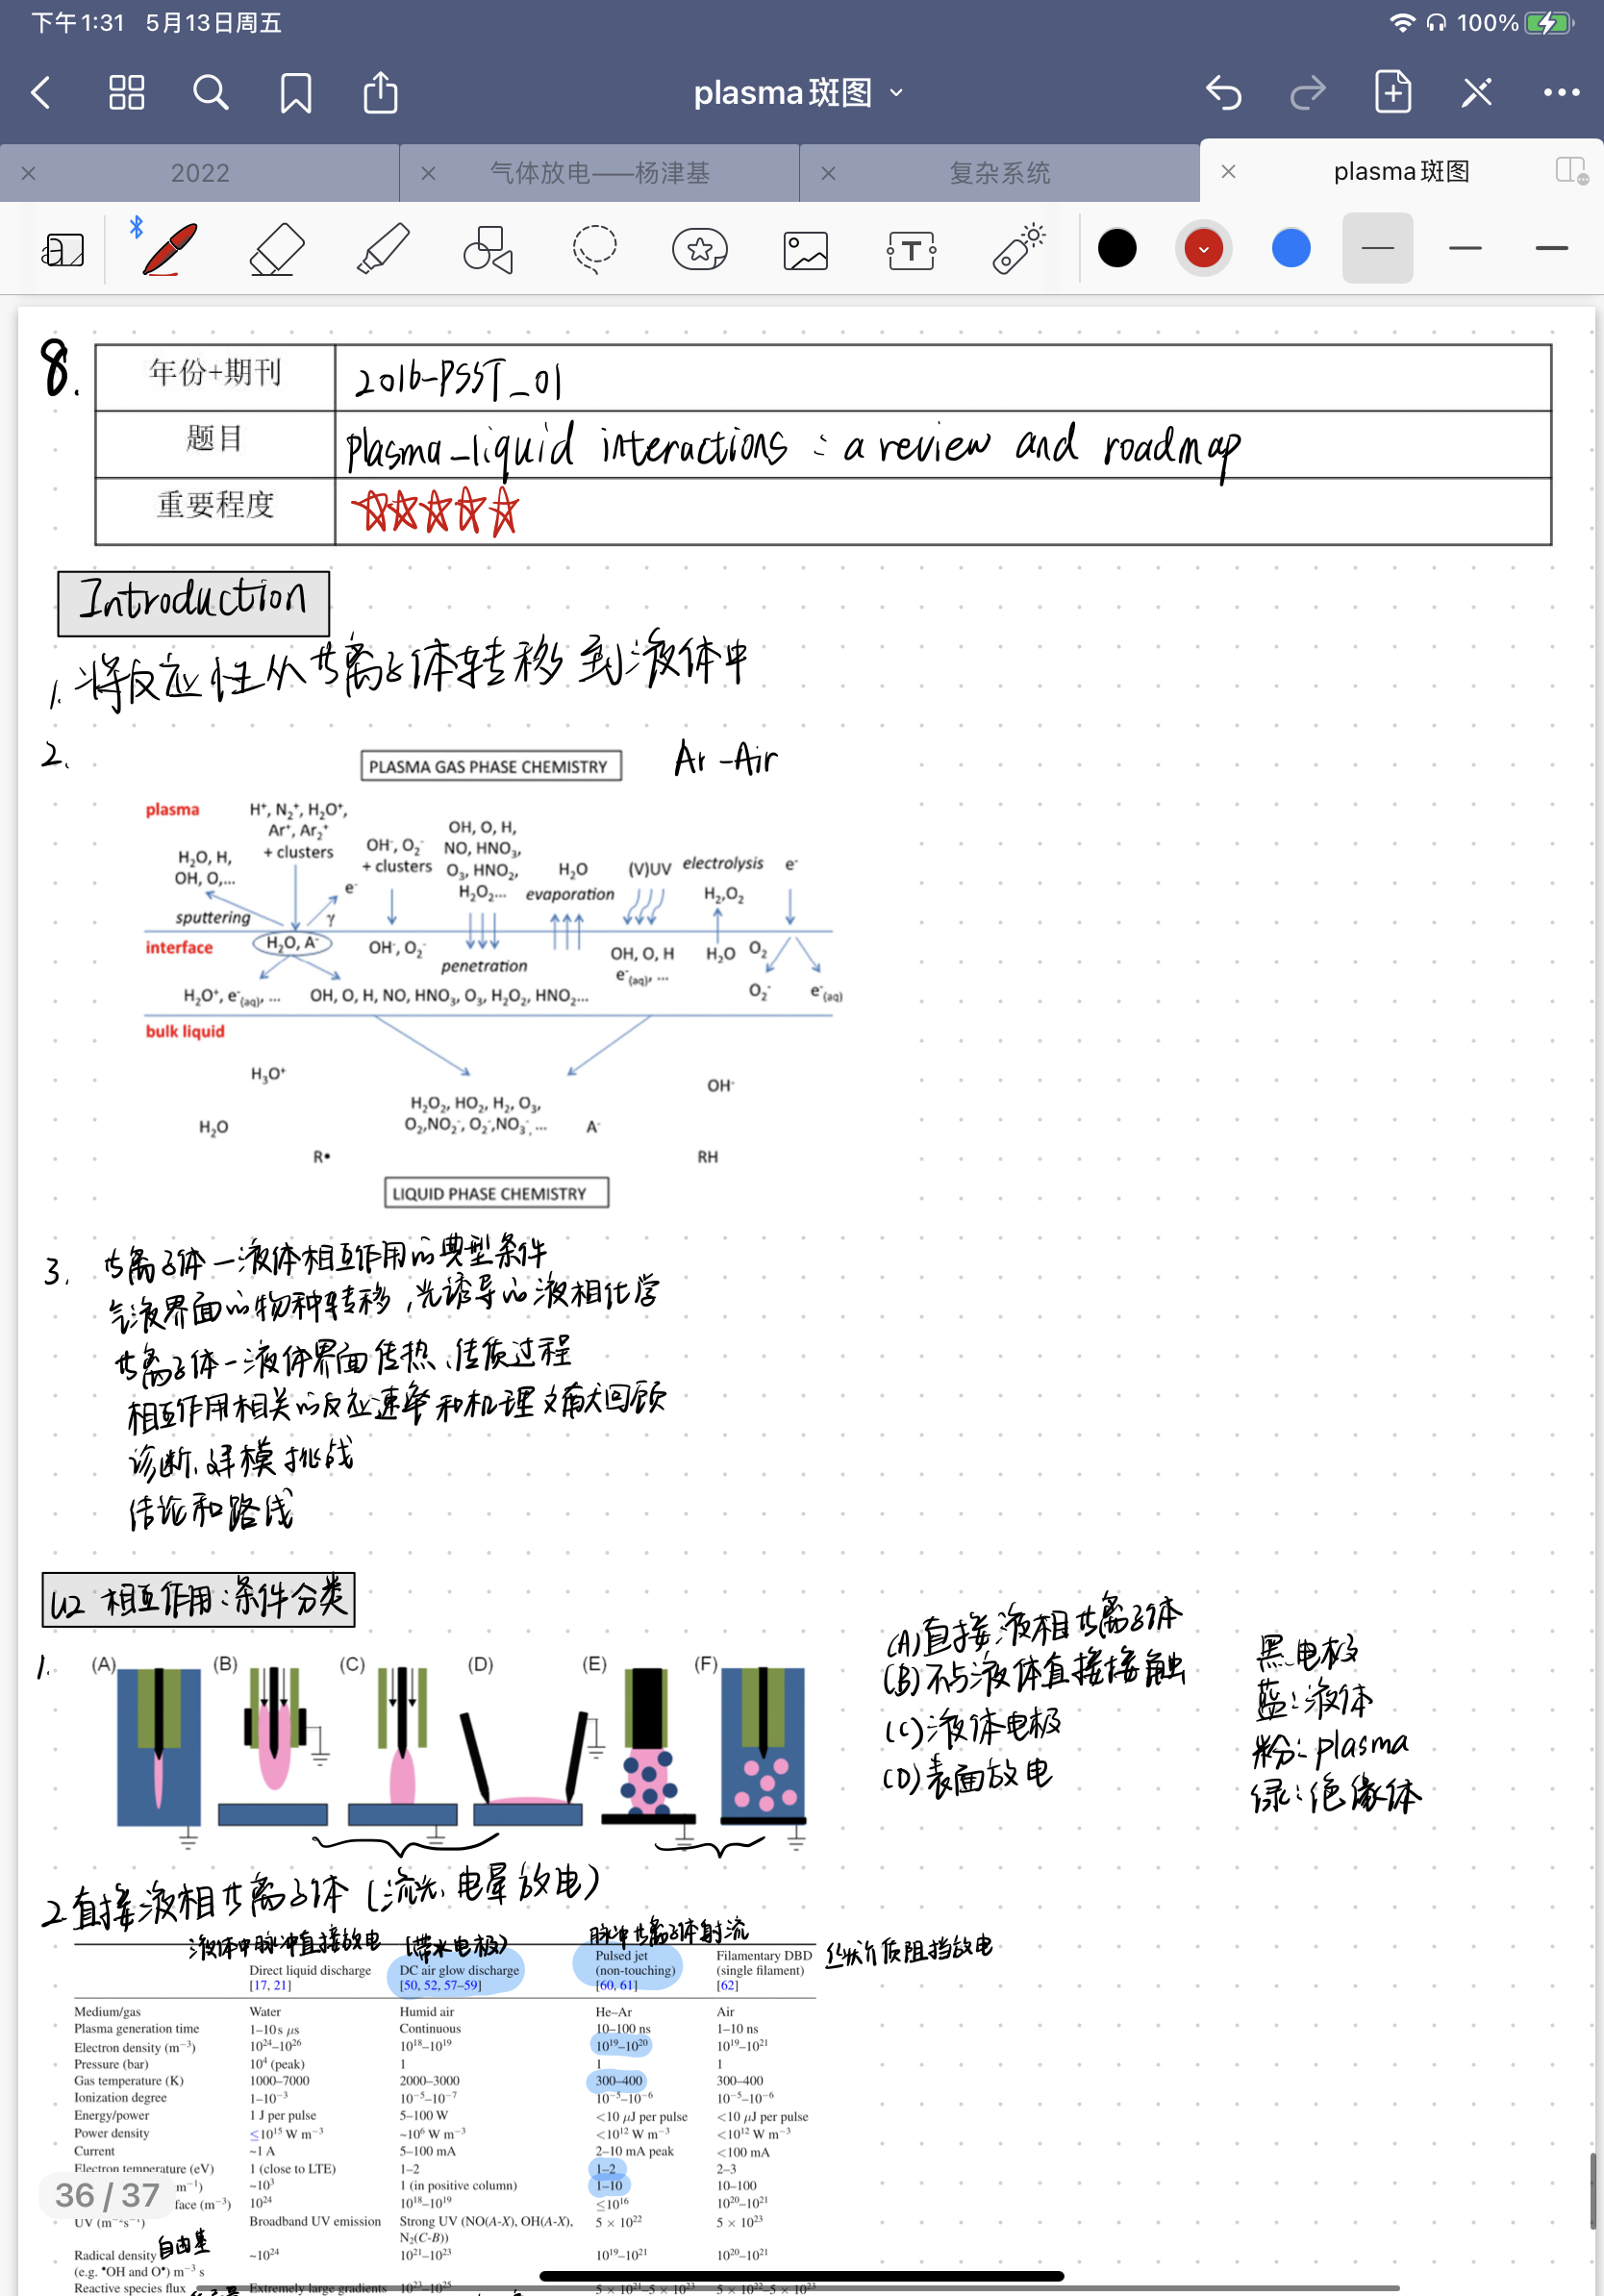 下午1:31 5月13日周五
100%
plasma斑图
2022
气体放电——杨津基
复杂系统
plasma斑图
8.
年份+期刊 2016-PSST_01
题目 plasma-liquid interactions: a review and roadmap
重要程度
Introduction
1. 将反应性从等离子体转移到液体中
2.
PLASMA GAS PHASE CHEMISTRY
Ar-Air
plasma
H⁺, N₂⁺, H₂O⁺,
Ar⁺, Ar₂⁺
+ clusters
H₂O, H,
OH, O,...
sputtering
e⁻
γ
OH⁻, O₂⁻
+ clusters
OH, O, H,
NO, HNO₃,
O₃, HNO₂,
H₂O₂...
H₂O
evaporation
(V)UV
electrolysis
H₂,O₂
e⁻
interface
H₂O, A⁻
OH⁻, O₂⁻
penetration
OH, O, H
e⁻(aq), ...
H₂O
O₂
H₂O⁺, e⁻(aq), ...
OH, O, H, NO, HNO₃, O₃, H₂O₂, HNO₂...
O₂⁻
e⁻(aq)
bulk liquid
H₃O⁺
OH⁻
H₂O₂, HO₂, H₂, O₃,
O₂,NO₂⁻, O₂⁻,NO₃⁻, ...
H₂O
A⁻
R•
RH
LIQUID PHASE CHEMISTRY
3. 等离子体—液体相互作用的典型条件
气液界面的物种转移,光诱导的液相化学
等离子体—液体界面传热、传质过程
相互作用相关的反应速率和机理文献回顾
诊断、建模挑战
结论和路线
U2 相互作用:条件分类
1.
(A) (B) (C) (D) (E) (F)
(A)直接液相等离子体
(B)不与液体直接接触
(C)液体电极
(D)表面放电
黑:电极
蓝:液体
粉:plasma
绿:绝缘体
2.直接液相等离子体(流光、电晕放电)
液体中脉冲直接放电
(带水电极)
脉冲等离子体射流
丝状介质阻挡放电
Direct liquid discharge [17, 21]
DC air glow discharge [50, 52, 57–59]
Pulsed jet (non-touching) [60, 61]
Filamentary DBD (single filament) [62]
Medium/gas Water Humid air He–Ar Air
Plasma generation time 1–10s μs Continuous 10–100 ns 1–10 ns
Electron density (m⁻³) 10²⁴–10²⁶ 10¹⁸–10¹⁹ 10¹⁹–10²⁰ 10¹⁹–10²¹
Pressure (bar) 10⁴ (peak) 1 1 1
Gas temperature (K) 1000–7000 2000–3000 300–400 300–400
Ionization degree 1–10⁻³ 10⁻⁵–10⁻⁷ 10⁻⁵–10⁻⁶ 10⁻⁵–10⁻⁶
Energy/power 1 J per pulse 5–100 W <10 μJ per pulse <10 μJ per pulse
Power density ≤10¹⁵ W m⁻³ ~10⁶ W m⁻³ <10¹² W m⁻³ <10¹² W m⁻³
Current ~1 A 5–100 mA 2–10 mA peak <100 mA
Electron temperature (eV) 1 (close to LTE) 1–2 1–2 2–3
m⁻¹) ~10³ 1 (in positive column) 1–10 10–100
face (m⁻³) 10²⁴ 10¹⁸–10¹⁹ ≤10¹⁶ 10²⁰–10²¹
36 / 37
UV (m⁻²s⁻¹) Broadband UV emission Strong UV (NO(A-X), OH(A-X), 5 × 10²² 5 × 10²³
N₂(C-B))
自由基
Radical density ~10²⁴ 10²¹–10²³ 10¹⁹–10²¹ 10²⁰–10²¹
(e.g. •OH and O•) m⁻³ s
Reactive species flux Extremely large gradients 10²³–10²⁵ 5 × 10²¹–5 × 10²³ 5 × 10²²–5 × 10²³